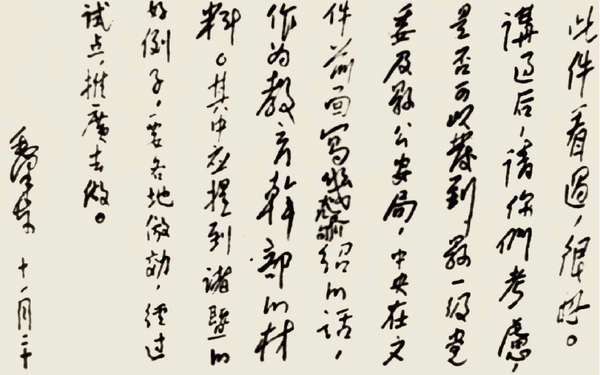 此件看過，很好。
講过后，請你們考慮，
是否可以發到縣一級党
委及縣公安局，中央在文
件前面寫幾句介紹的話，
作为教育幹部的材
料。其中应提到諸暨的
好例子，要各地仿効，經过
試点，推廣去做。
毛澤东 十一月二十